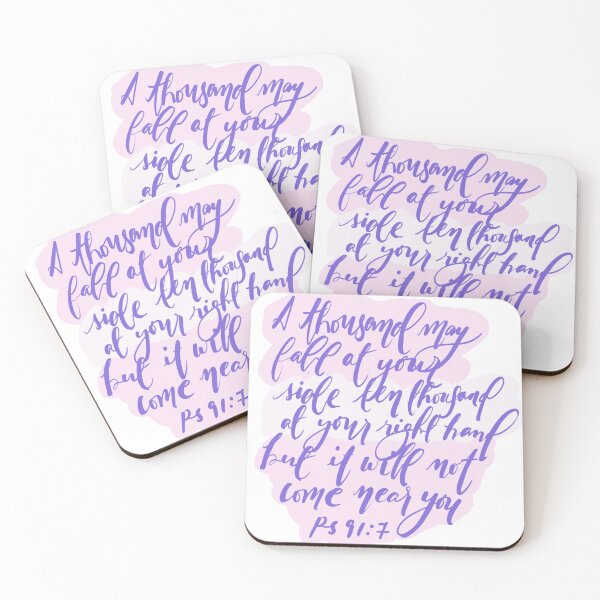 A thousand may
fall at your
side ten thousand
at
not
A thousand may
fall at your
side ten thousand
at your right hand
but it will not
A thousand may
fall at your
side ten thousand
at your right hand
but it will
come near
Ps 91:7
A thousand may
fall at your
side ten thousand
at your right hand
but it will not
come near you
Ps 91:7